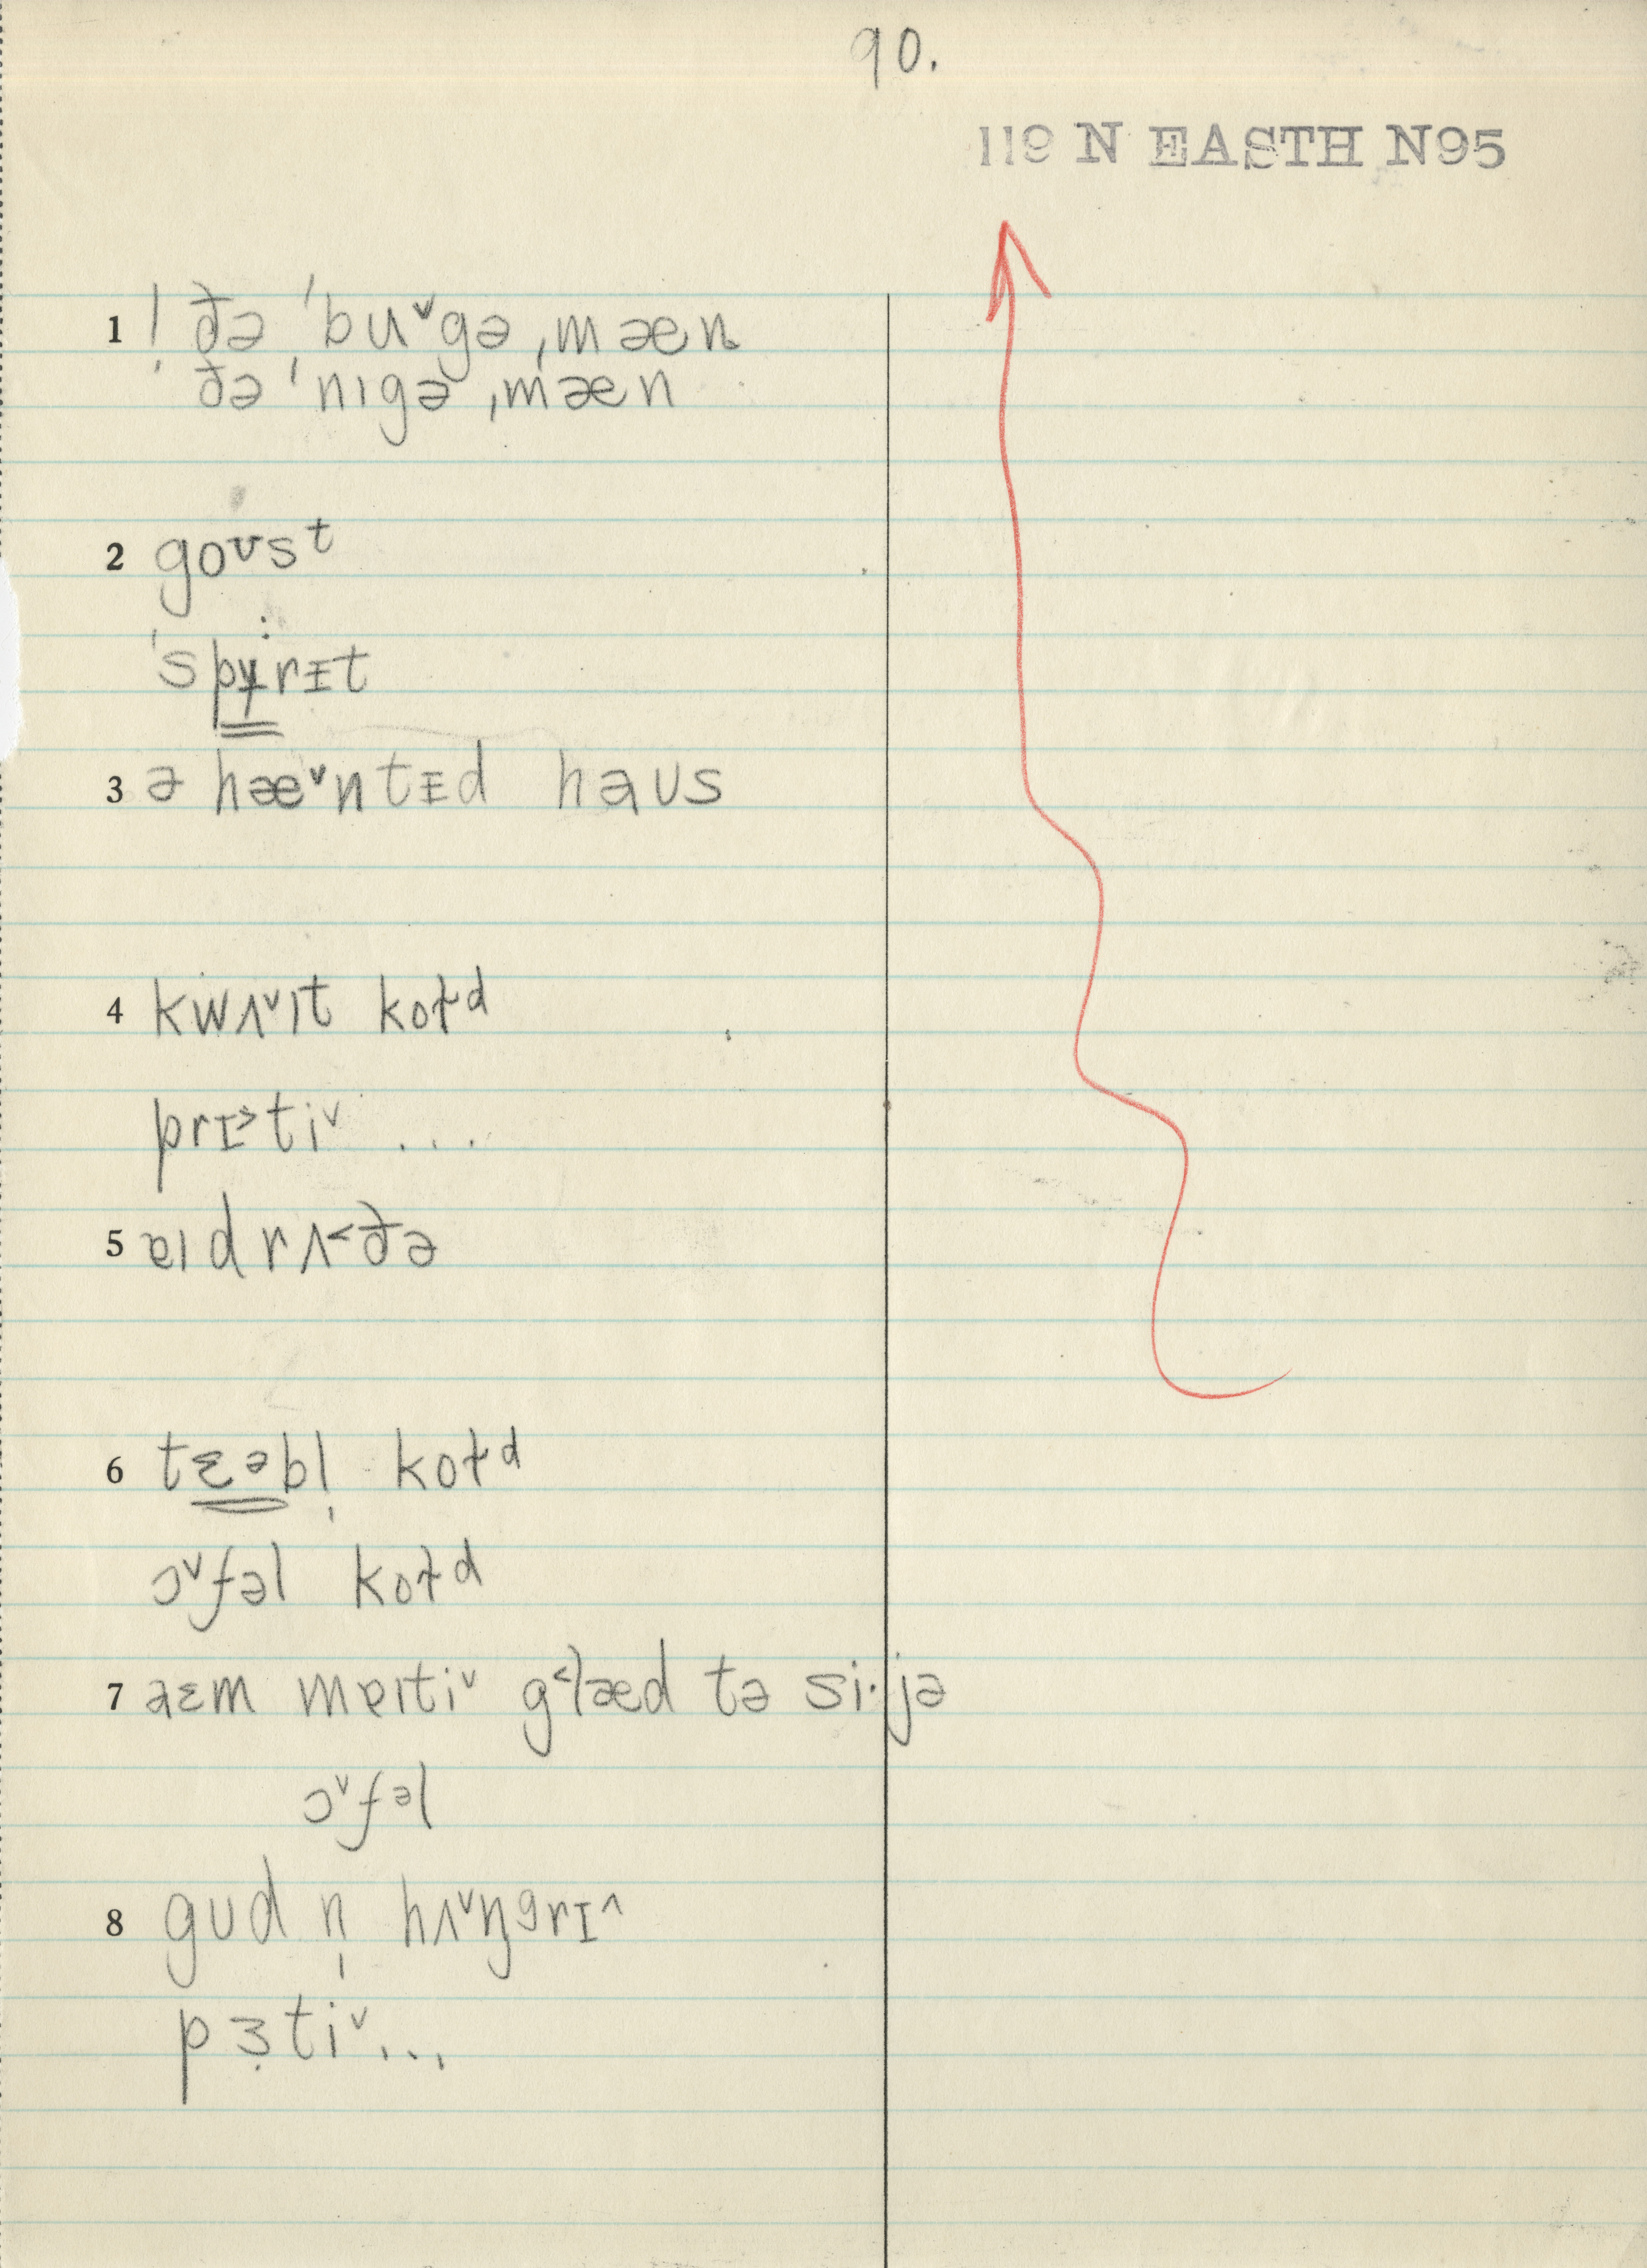 90.
119 N EASTH N95
1 ! ðə ˈbuˇgə ˌmæn
ðə ˈnɪgə ˌmæn
2 goʊsᵗ
ˈspɏ̈rɪt
3 ə hæˇntɪd haʊs
4 kwʌˇɪt koɫᵈ
prɪ˃tiˇ ...
5 ɐɪdrʌ˂ðə
6 tɛᵊbl̩ koɫᵈ
ɔˇfəl koɫᵈ
7 aɛm mɐɪtiˇ g˂læd tə si·jə
ɔˇfəl
8 gʊd n̩ hʌˇŋᶢrɪ^
pɜ̣tiˇ...